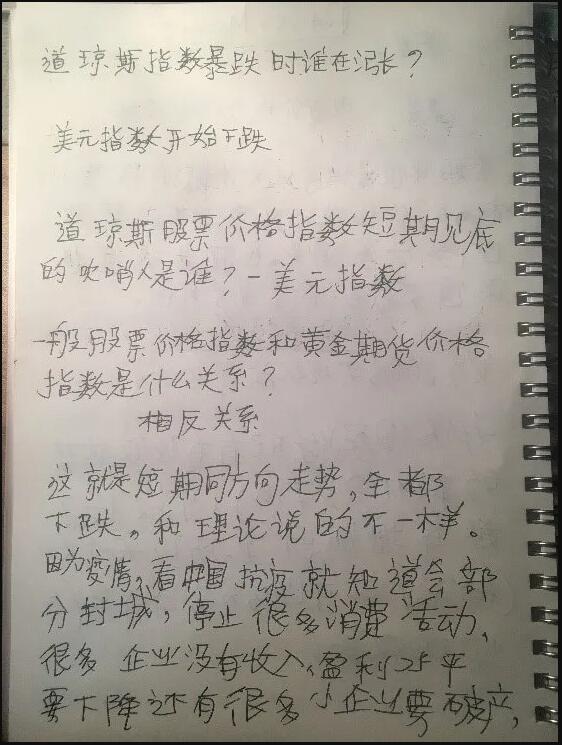 道琼斯指数暴跌时谁在涨？
美元指数开始下跌
道琼斯股票价格指数短期见底
的吹哨人是谁？-美元指数
一般股票价格指数和黄金期货价格
指数是什么关系？
相反关系
这就是短期同方向走势，全都
下跌。和理论说的不一样。
因为疫情，看中国抗疫就知道会部
分封城，停止很多消费活动，
很多企业没有收入，盈利水平
要下降还有很多小企业要破产，